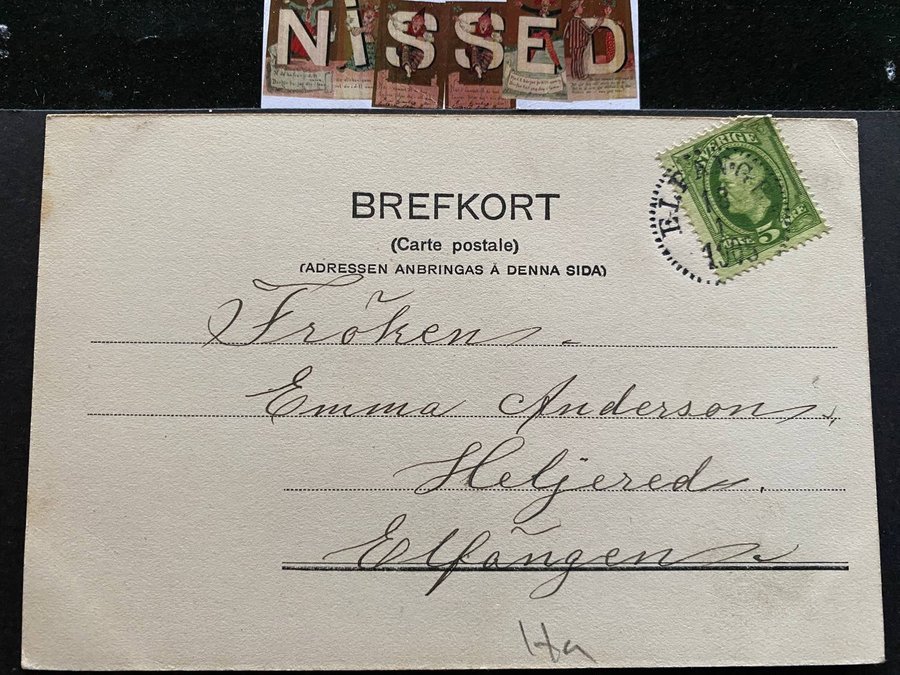 NISSED
BREFKORT
(Carte postale)
(ADRESSEN ANBRINGAS Å DENNA SIDA)
SVERIGE
5
Fröken
Emma Anderson,
Heljered.
Elfängen